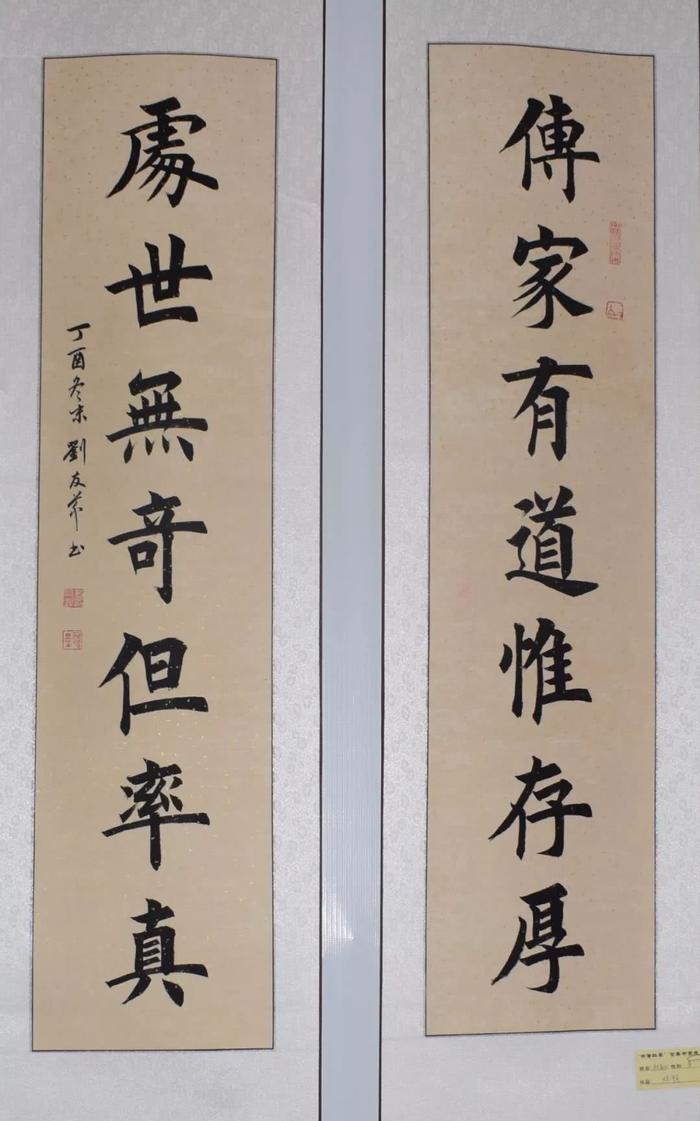 傳家有道惟存厚
處世無奇但率真
丁酉冬末 劉友蓱书